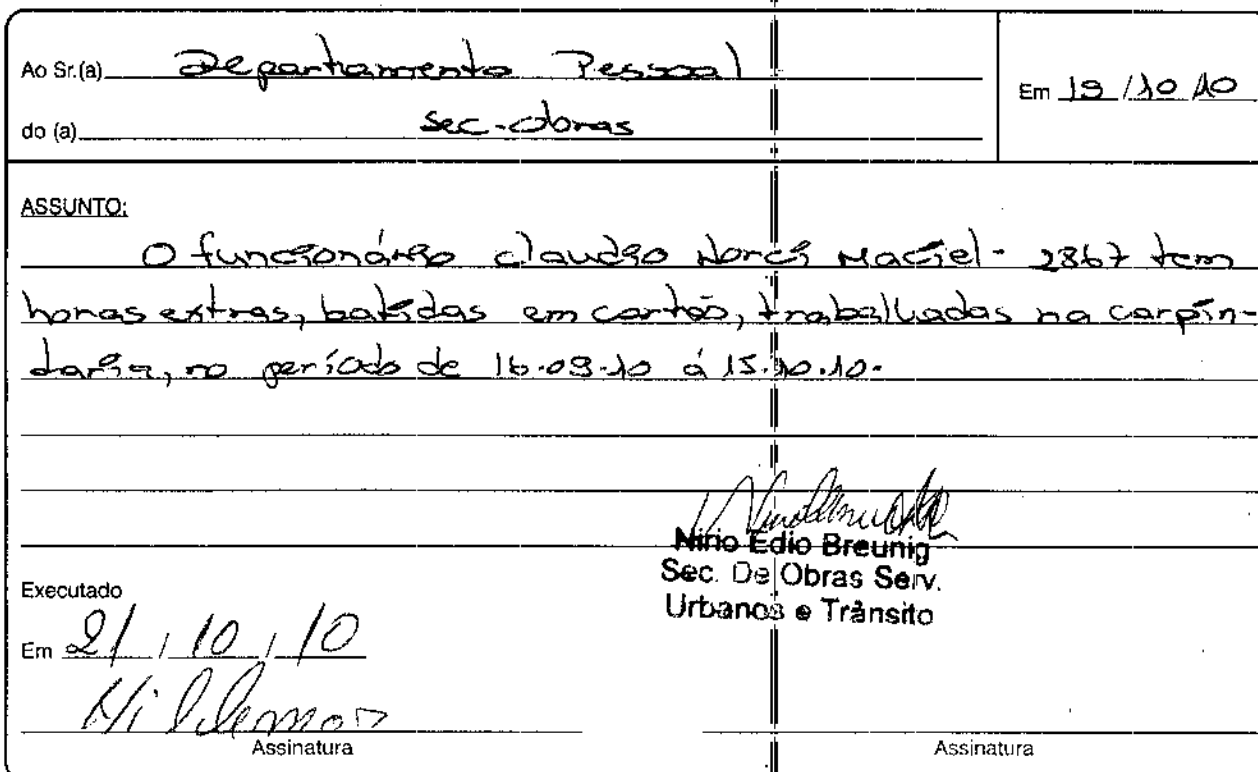 Ao Sr.(a) Departamento Pessoal
Em 19/10/10
do (a) Sec. Obras
ASSUNTO:
O funcionário Claudio Norci Maciel - 2867 tem
horas extras, batidas em cartão, trabalhadas na carpin-
daria, no período de 16.09.10 á 15.10.10.
Nirio Edio Breunig
Sec. De Obras Serv.
Urbanos e Trânsito
Executado
Em 21/10/10
Assinatura
Assinatura